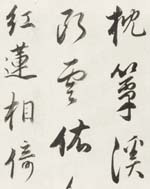 枕簟溪
斷雲依
紅蓮相倚